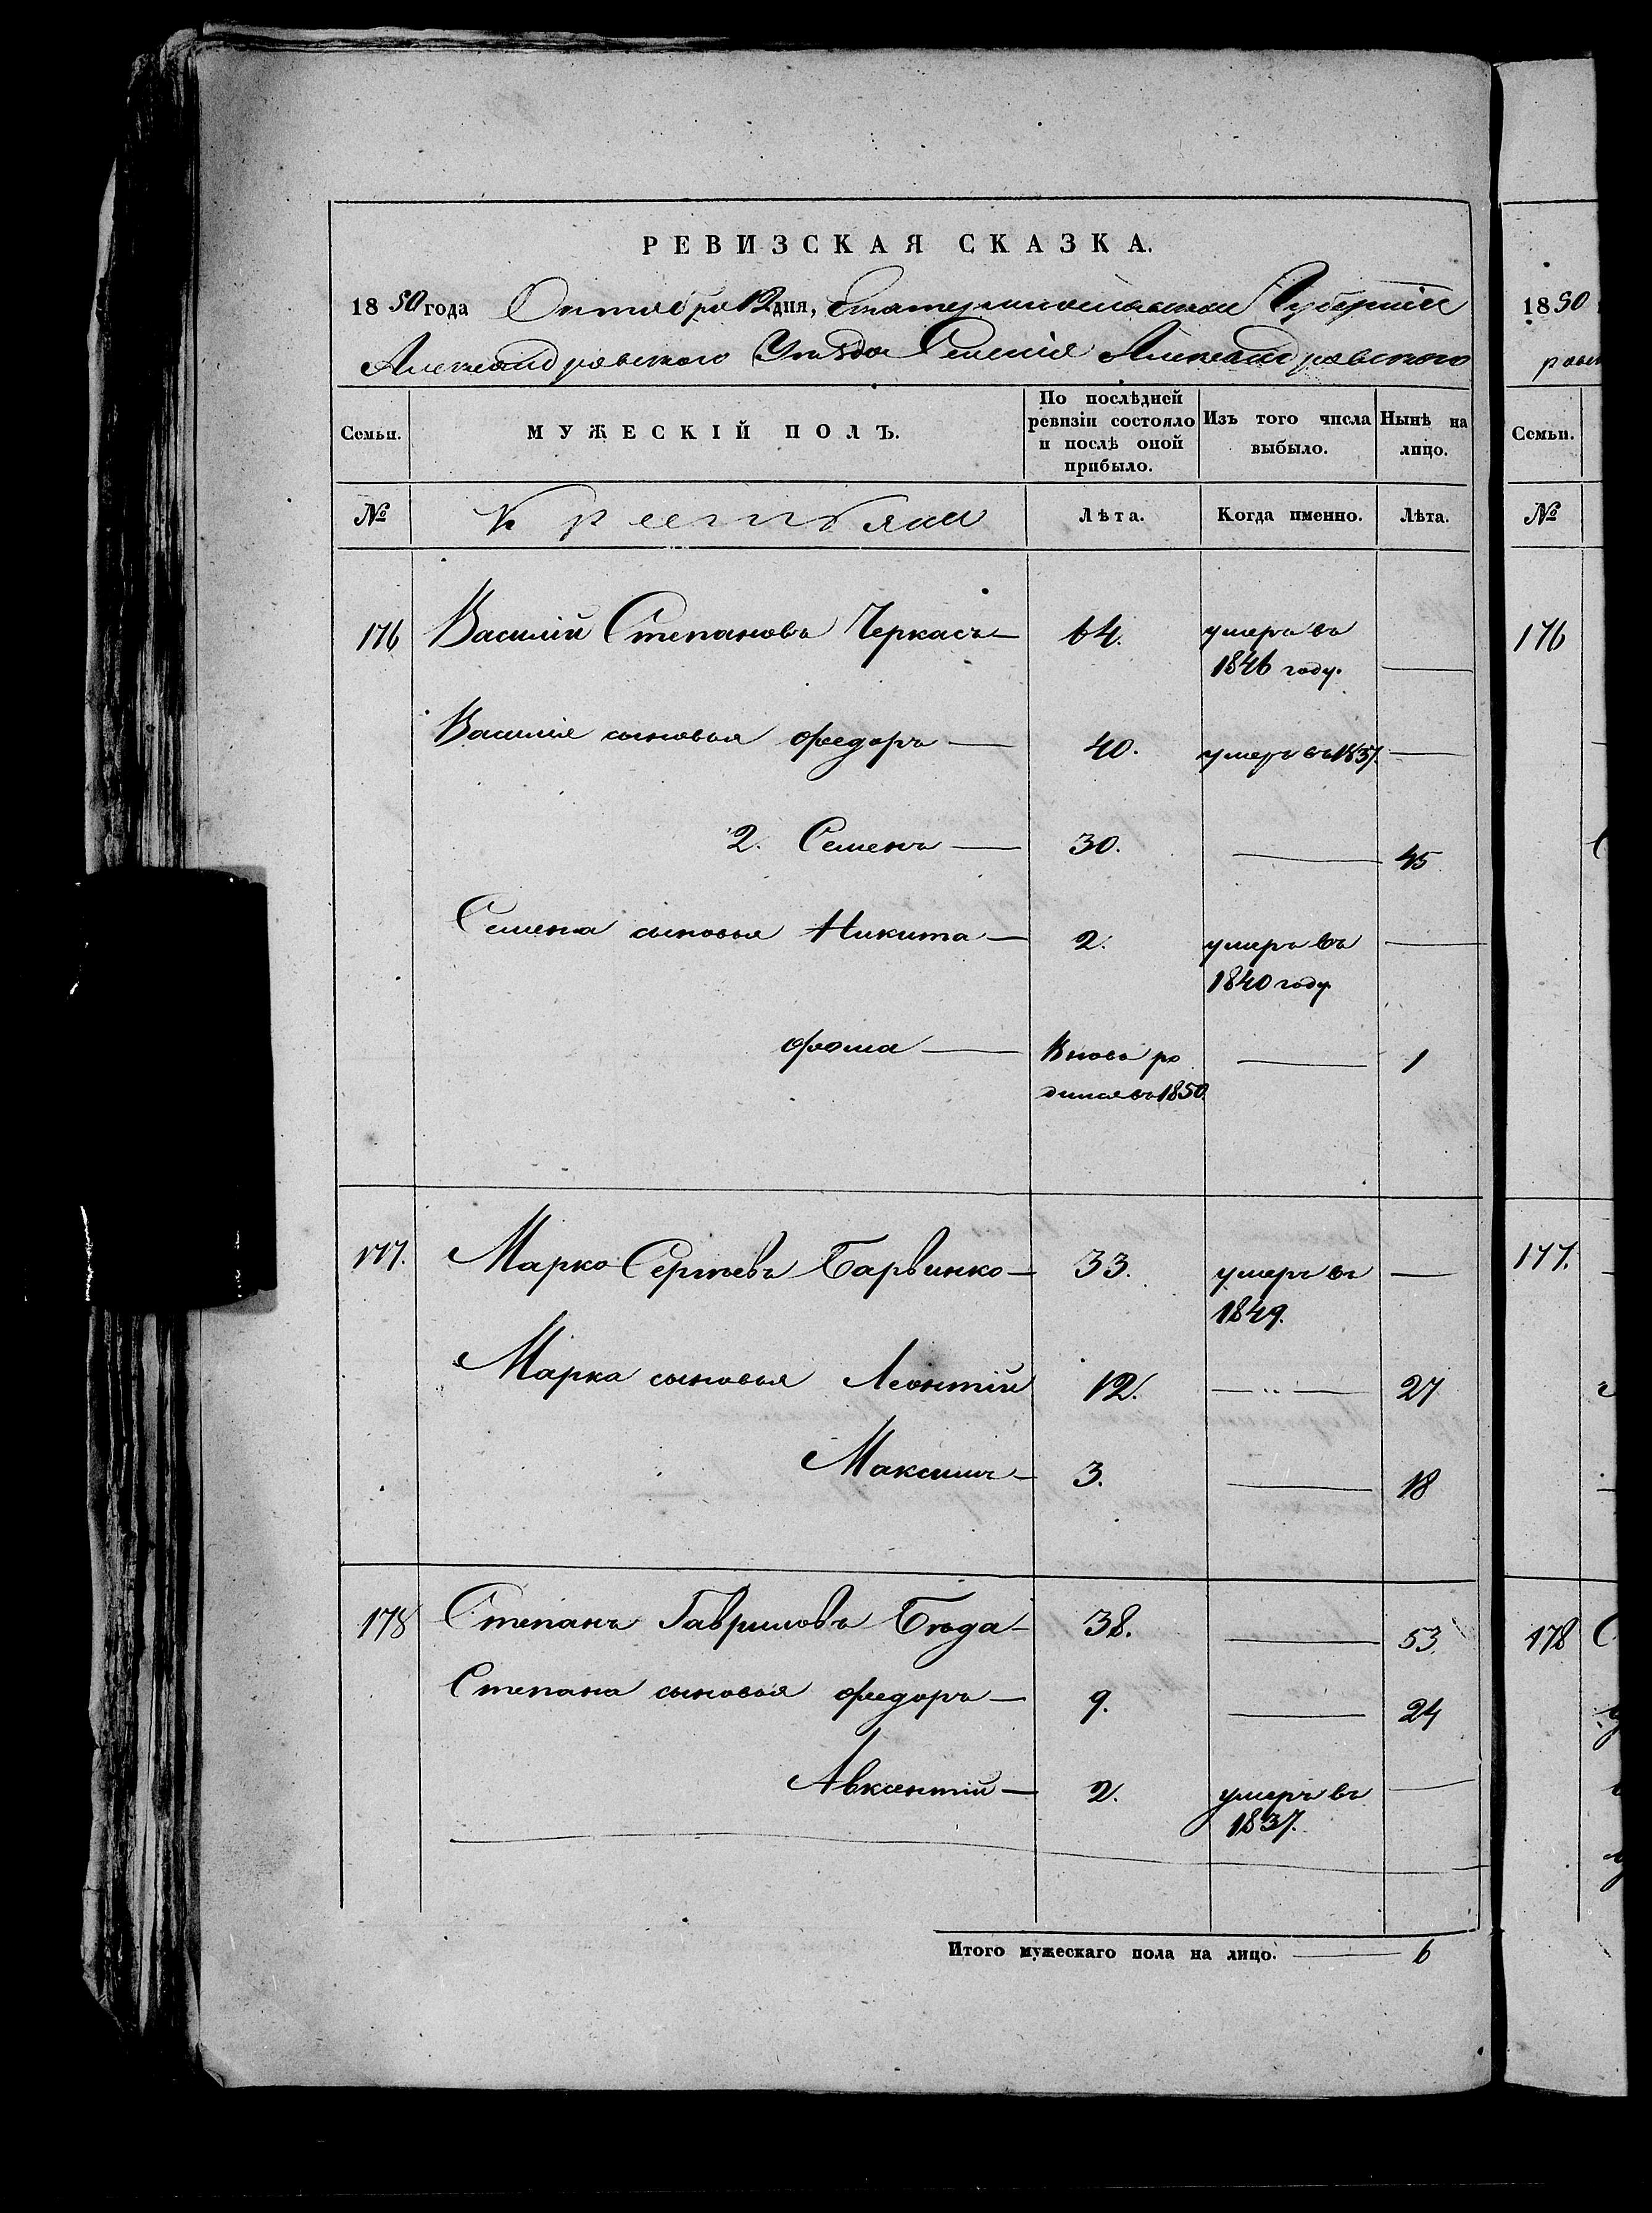 РЕВИЗСКАЯ СКАЗКА.
1850 года Октября 12 дня, Екатеринославской Губерніи
Александровского Уѣзда Селенія Александровского
Семьи.
МУЖЕСКІЙ ПОЛЪ.
По послѣдней ревизіи состояло и послѣ оной прибыло.
Изъ того числа выбыло.
Нынѣ на лицо.
№ Крестьяне Лѣта. Когда именно. Лѣта.
176 Василій Степановъ Черкасъ — 64. умеръ въ
1846 году. —
Василія сыновья Федоръ — 40. умеръ въ 1837. —
2. Семенъ — 30. — 45
Семена сыновья Никита — 2. умеръ въ —
1840 году
Фома — Вновь ро — 1
дился въ 1850.
177. Марко Сергѣевъ Барвинко — 33. умеръ въ —
1849.
Марка сыновья Леонтій 12. — „ — 27
Максимъ — 3. — 18
178 Степанъ Гавриловъ Бѣда — 38. — 53.
Степана сыновья Федоръ — 9. — 24
Авксентій — 2. умеръ въ —
1837.
Итого мужескаго пола на лицо. — 6
1850
Семьи.
№
176
177.
178